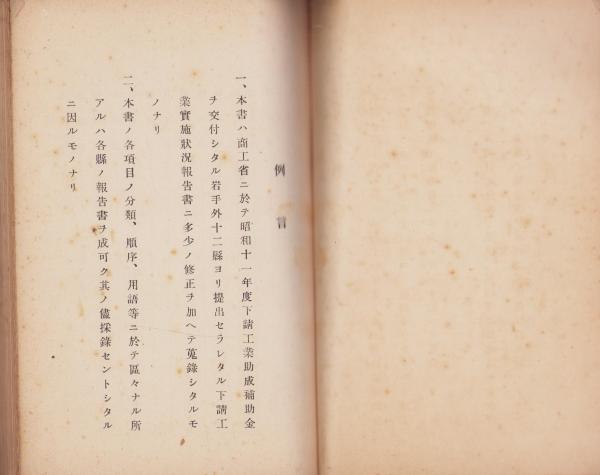 例言
一、本書ハ商工省ニ於テ昭和十一年度下請工業助成補助金
ヲ交付シタル岩手外十二縣ヨリ提出セラレタル下請工
業實施狀況報告書ニ多少ノ修正ヲ加ヘテ蒐錄シタルモ
ノナリ
二、本書ノ各項目ノ分類、順序、用語等ニ於テ區々ナル所
アルハ各縣ノ報告書ヲ成可ク其ノ儘採錄セントシタル
ニ因ルモノナリ